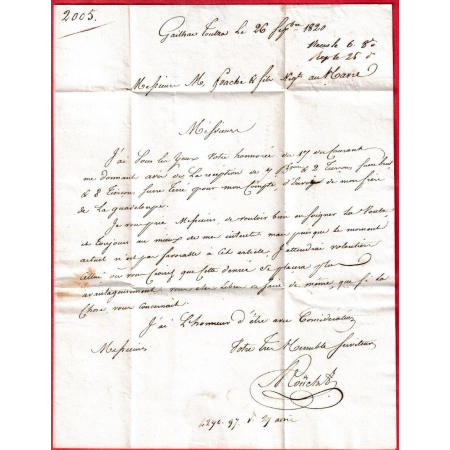 2005.
Gaillac Toulza le 26 7bre 1820
Reçu le 6. 8b
Rep le 25 d
Messieurs M. foache & fils Negts au Havre
Messieurs
J'ai Sous les yeux Votre honnorée du 17 du Courant
me donnant avis de La reception de 4 & 2 Tierçons Sucre brut
& 8 Tierçons Sucre Terré pour mon Compte d'Envoy de mon frère
de La guadeloupe.
Je vous prie Messieurs de vouloir bien en Soigner La Vente
et toujours au mieux de mes interets mais puisque le moment
actuel n'est pas favorable à Cet article. J'attendrai volontiers
celui où vous Croirez que Cette denrée Se placera plus
avantageusement vous etes Libre de faire de meme que si La
Chose vous Concernait.
J'ai L'honneur d'être avec Consideration
Messieurs
Votre Très Humble Serviteur
429f. 97. d. 27 avril